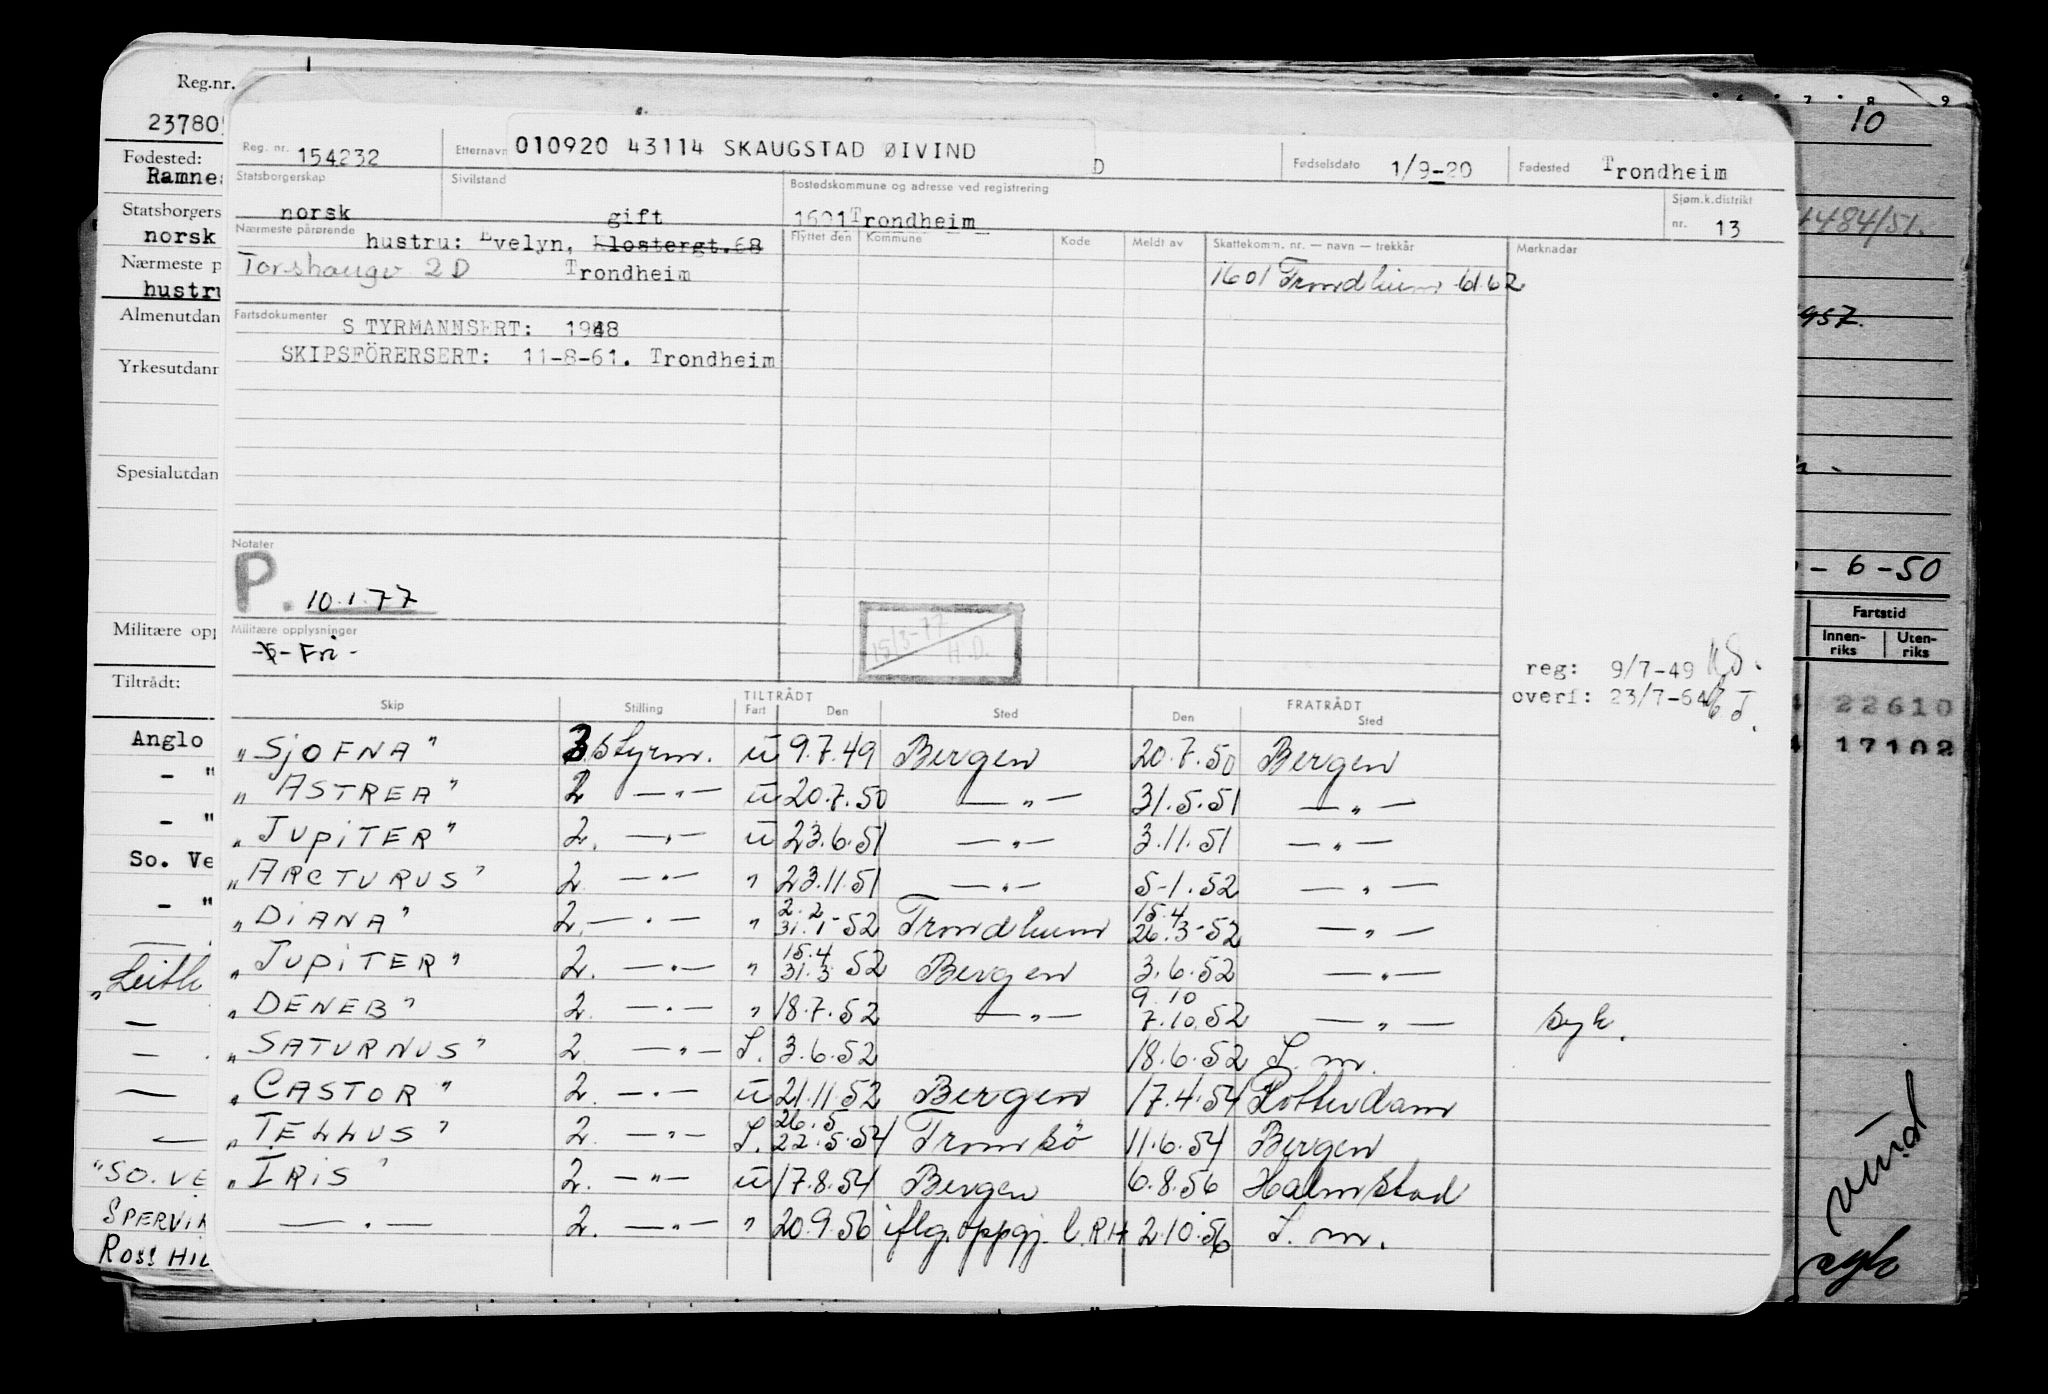 Reg.nr.
23780
Fødested:
Ramnes
Statsborgers
norsk
Nærmeste p
hustru
Almenutdan
Yrkesutdann
Spesialutdan
Militære opp
Tiltrådt:
Anglo
- "
- "
So. Ve
- "
"Leith
"SO. VE
SPERVIK
ROSS HIL
Reg. nr. 154232 Etternavn 010920 43114 SKAUGSTAD ØIVIND D Fødselsdato 1/9-20 Fødested Trondheim
Statsborgerskap norsk Sivilstand gift Bostedskommune og adresse ved registrering 1601 Trondheim Sjøm.k.distrikt nr. 13
Nærmeste pårørende hustru: Evelyn, Klostergt.68
Torshaugv 2D Trondheim
Flyttet den Kommune Kode Meldt av Skattekomm. nr. — navn — trekkår Merknader
1601 Trondheim 61.62
Fartsdokumenter STYRMANNSERT: 1948
SKIPSFÖRERSERT: 11-8-61. Trondheim
Notater
P. 10.1.77
15/3-77 H.D.
Militære opplysninger
- Fri -
reg: 9/7-49
overf: 23/7-64
Skip Stilling TILTRÅDT Fart Den Sted FRATRÅDT Den Sted
"SJOFNA" 3 Styrm. u 9.7.49 Bergen 20.7.50 Bergen
"ASTREA" 2 —"— u 20.7.50 —"— 31.5.51 —"—
"JUPITER" 2. —"— u 23.6.51 —"— 3.11.51 —"—
"ARCTURUS" 2 —"— " 23.11.51 —"— 5-1.52 —"—
"DIANA" 2. —"— " 2.2 31.1-52 Trondheim 15.4 26.3-52 —"—
"JUPITER" 2. —"— " 15.4 31.3 52 Bergen 3.6.52 —"—
"DENEB" 2. —"— " 18.7.52 —"— 9.10 7.10.52 —"— Syk.
"SATURNUS" 2 —"— I. 3.6.52 18.6.52 I. m.
"CASTOR" 2. —"— u 21.11.52 Bergen 17.4.54 Rotterdam
"TELLUS" 2. —"— I. 26.5 22.5.54 Tromsö 11.6.54 Bergen
"IRIS" 2. —"— u 17.8.54 Bergen 6.8.56 Halmstad
—"— 2. —"— " 20.9.56 iflg. oppgj. l. RH 2.10.56 I. m.
7 8 9
10
1484/51.
1957.
- 6 - 50
Fartstid
Innen-riks Uten-riks
22610
17102
syk